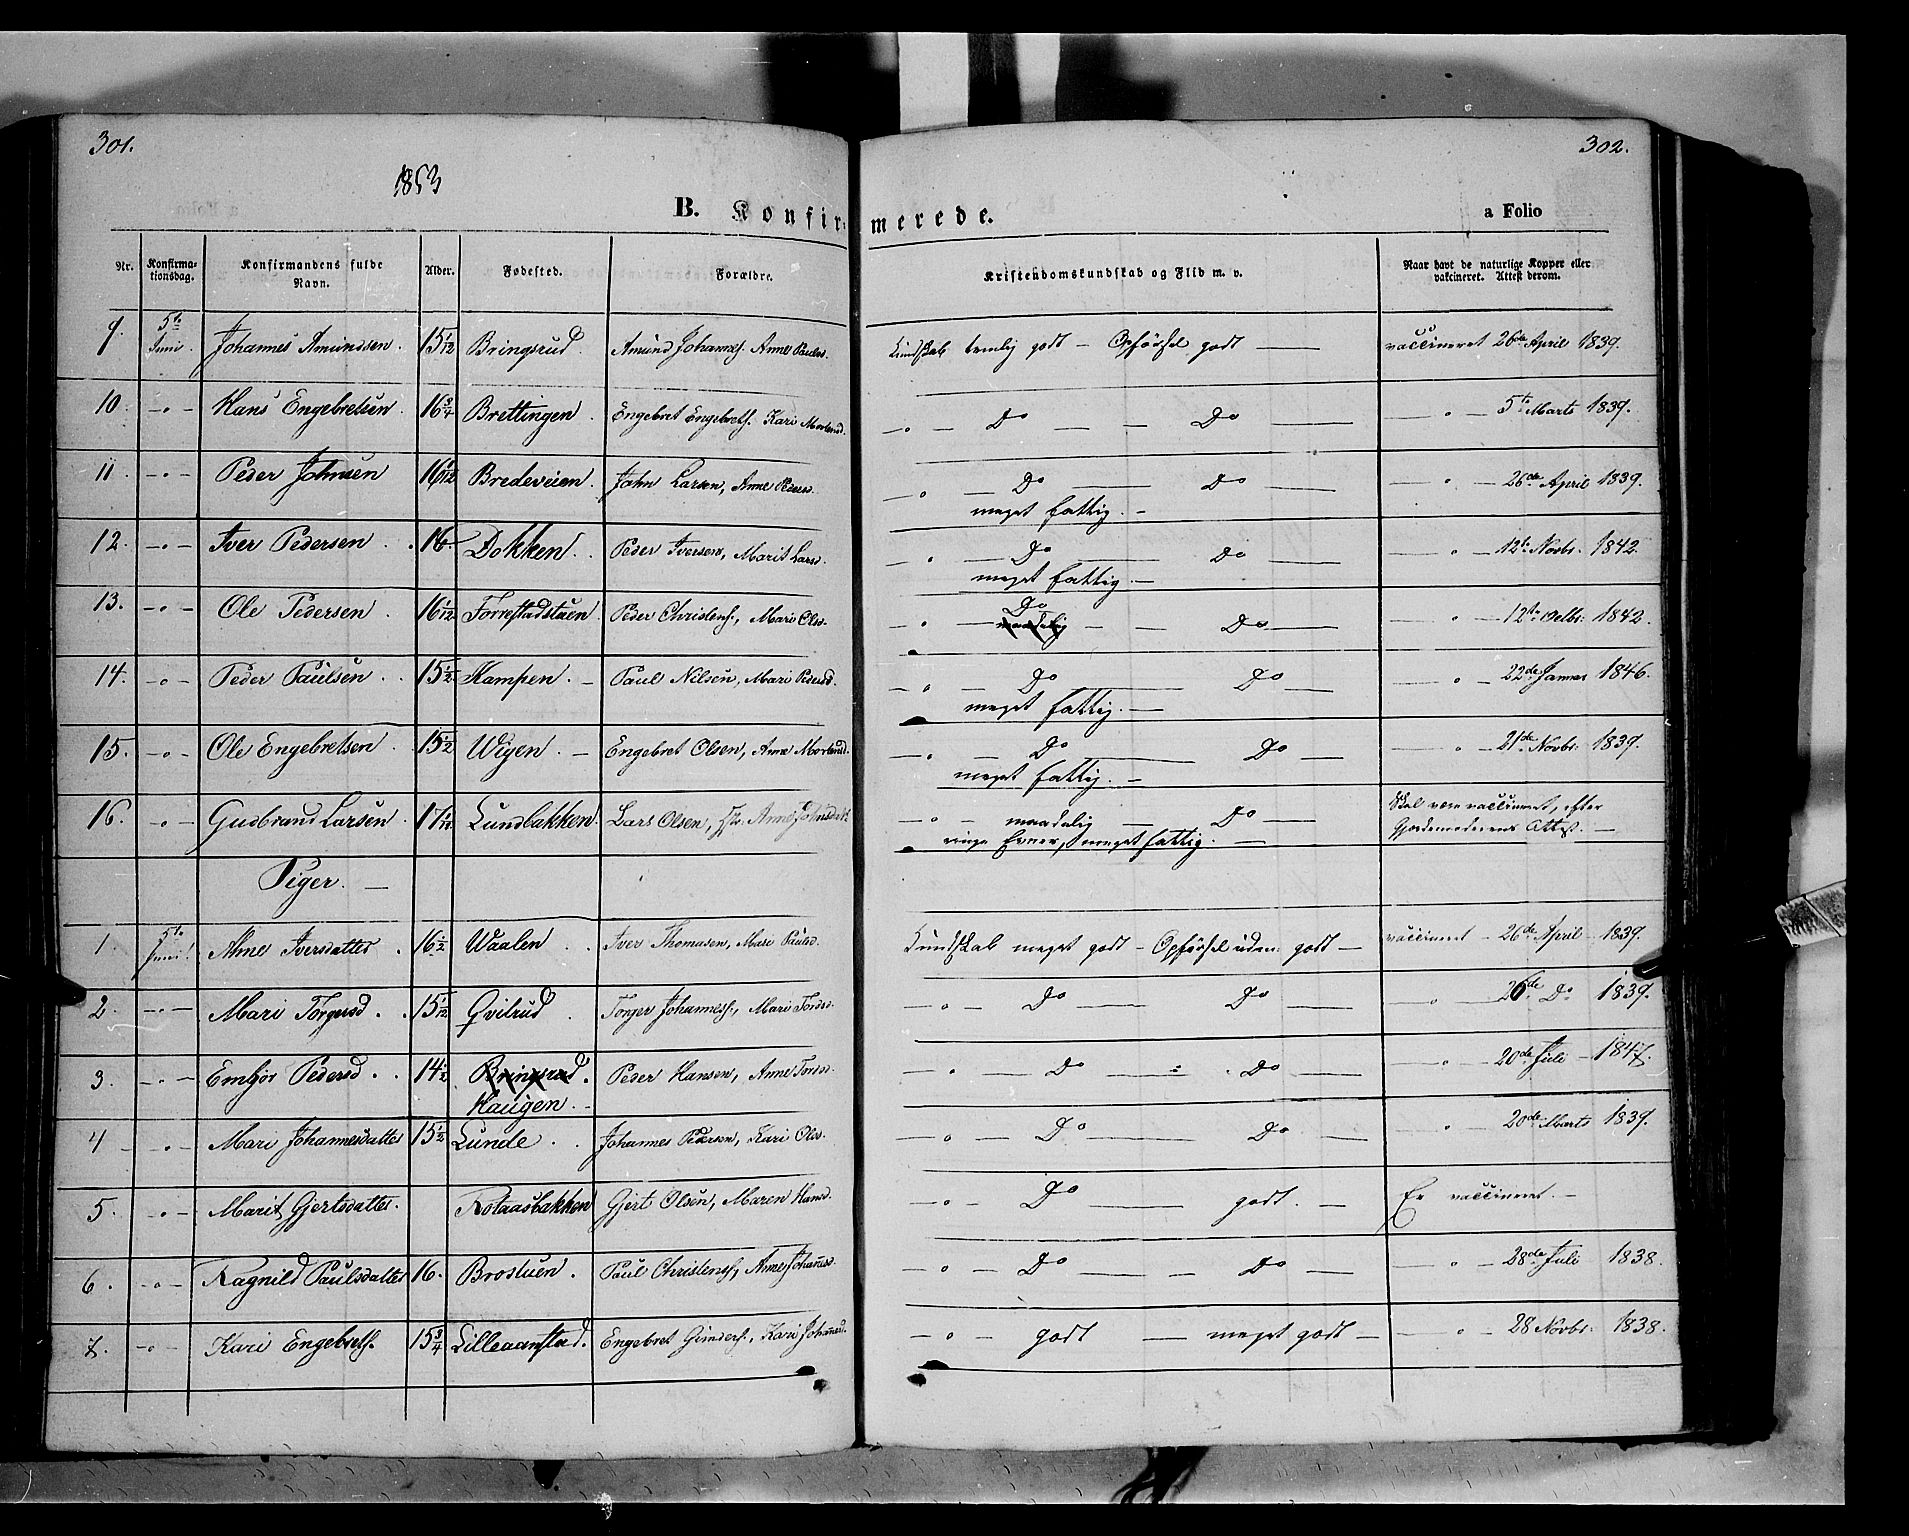 301.
302.
1853
B. Konfirmerede.
a Folio
Nr. Konfirmationsdag. Konfirmandens fulde Navn. Alder. Fødested. Forældre. Kristendomskundskab og Flid m. v. Naar havt de naturlige Kopper eller vakcineret. Attest derom.
9. 5te Juni. Johannes Amundsen. 15 1/12 Bringsrud. Amund Johannes. Anne Paulsd. Kundskab temlig godt — Opførsel godt — vaccineret 26de April 1839.
10. -"- Hans Engebretsen. 16 3/4 Brettingen. Engebret Engebrets. Kari Mortensd. -"- Do — — Do — — " — 5te Marts 1839.
11. -"- Peder Johnsen 16 1/12 Bredeveien. John Larsen, Anne Pedersd. " — Do — Do — " — 26de April 1839.
meget fattig. —
12. -"- Iver Pedersen. 16. Dokken. Peder Iversen, Marit Larsd. " — Do — Do — — " — 12te Novbr. 1842.
meget fattig. —
13. -"- Ole Pedersen. 16 1/12 Torrestadstuen Peder Christens., Mari Olsd. -"- Do — Do — " — 12te Octbr. 1842.
maadelig
14. -"- Peder Paulsen. 15 1/2 Kampen. — Paul Nilsen, Mari Pedersd. — " — Do — Do — — " — 22de Januar 1846.
meget fattig. —
15. -"- Ole Engebretsen. 15 1/2 Wigen. — Engebret Olsen, Anne Mortensd. -"- Do — Do — — " — 21de Novbr. 1839.
meget fattig. —
16. " Gudbrand Larsen. 17 1/12 Lundbakken. Lars Olsen, Anne Johnsdatt. -"- maadelig — Do — Skal være vaccineret, efter
ringe Evner, meget fattig. — Gjordemoderens Attest. —
Piger. —
1. 5te Juni! Anne Iversdatter. 16 1/2 Waalen. Iver Thomasen, Mari Paulsd. Kundskab meget godt — Opførsel uden: godt — vaccineret — 26de April 1839.
2. -"- Mari Torgersd. 15 1/12 Qvilrud. Torger Johannes., Mari Tordsd. -"- Do — Do — " — 26de Do 1839.
3. -"- Embjør Pedersd. 14 1/2 Bringsrud. Peder Hansen, Anne Tordsd. -"- Do — " — Do — " — 20de Juli — 1847.
Haugen. —
4 — " — Mari Johannesdatter 15 1/2 Lunde. Johannes Pedersen, Kari Olsd. " — Do — Do — — " — 20de Marts 1839.
5. -"- Marit Gjertsdatter. Rotaasbakken Gjert Olsen, Maren Hansd. -"- Do — godt. — Er vaccineret. —
6. -"- Ragnild Paulsdatter 16. Brostuen. Paul Christens., Anne Johannesd. -"- Do — — Do — — " — 28de Juli 1838.
7. -"- Kari Engebrets. 15 3/4 Lilleaanstad. Engebret Gunders., Kari Johansd. -"- godt — meget godt — — " — 28 Novbr. 1838.